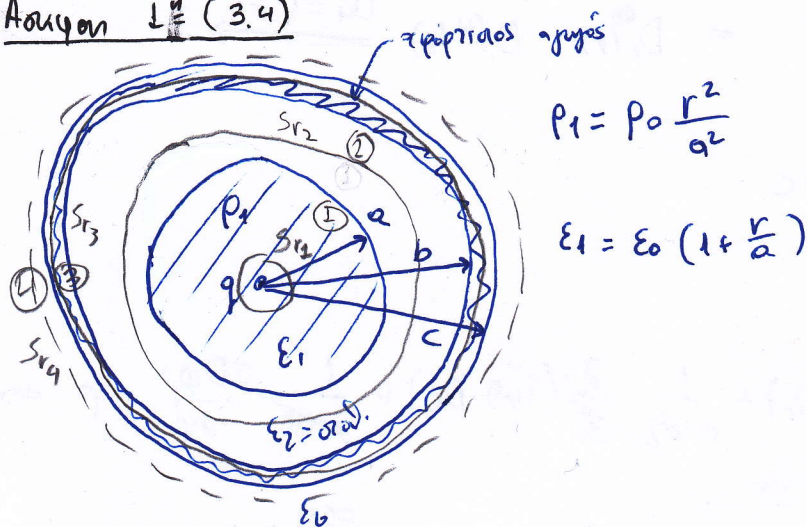 Άσκηση 1η (3.4)
αφόρτιστος αγωγός
ρ1 = ρ0 r²/a²
ε1 = ε0 (1 + r/a)
Sr2
②
ρ1
①
a
Sr1
b
Sr3
③
④
q
c
Sr4
ε1
ε2 = σταθ.
ε0